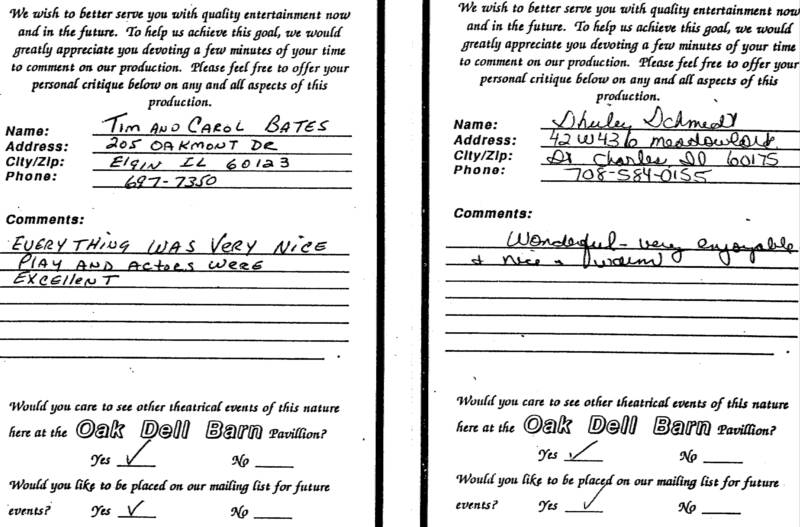 We wish to better serve you with quality entertainment now
and in the future. To help us achieve this goal, we would
greatly appreciate you devoting a few minutes of your time
to comment on our production. Please feel free to offer your
personal critique below on any and all aspects of this
production.
Name: TIM AND CAROL BATES
Address: 205 OAKMONT DR
City/Zip: ElgIN IL 60123
Phone: 697-7350
Comments:
EVERYTHING WAS VERY NICE
PLAY AND ACTORS WERE
EXCEllENT
Would you care to see other theatrical events of this nature
here at the Oak Dell Barn Pavillion?
Yes ✓ No
Would you like to be placed on our mailing list for future
events? Yes ✓ No
We wish to better serve you with quality entertainment now
and in the future. To help us achieve this goal, we would
greatly appreciate you devoting a few minutes of your time
to comment on our production. Please feel free to offer your
personal critique below on any and all aspects of this
production.
Name: Schmidt
Address: 42W436
City/Zip: St Charles, Il 60175
Phone: 708-584-0155
Comments:
Wonderful - very enjoyable
+ nice + warm
Would you care to see other theatrical events of this nature
here at the Oak Dell Barn Pavillion?
Yes ✓ No
Would you like to be placed on our mailing list for future
events? Yes ✓ No